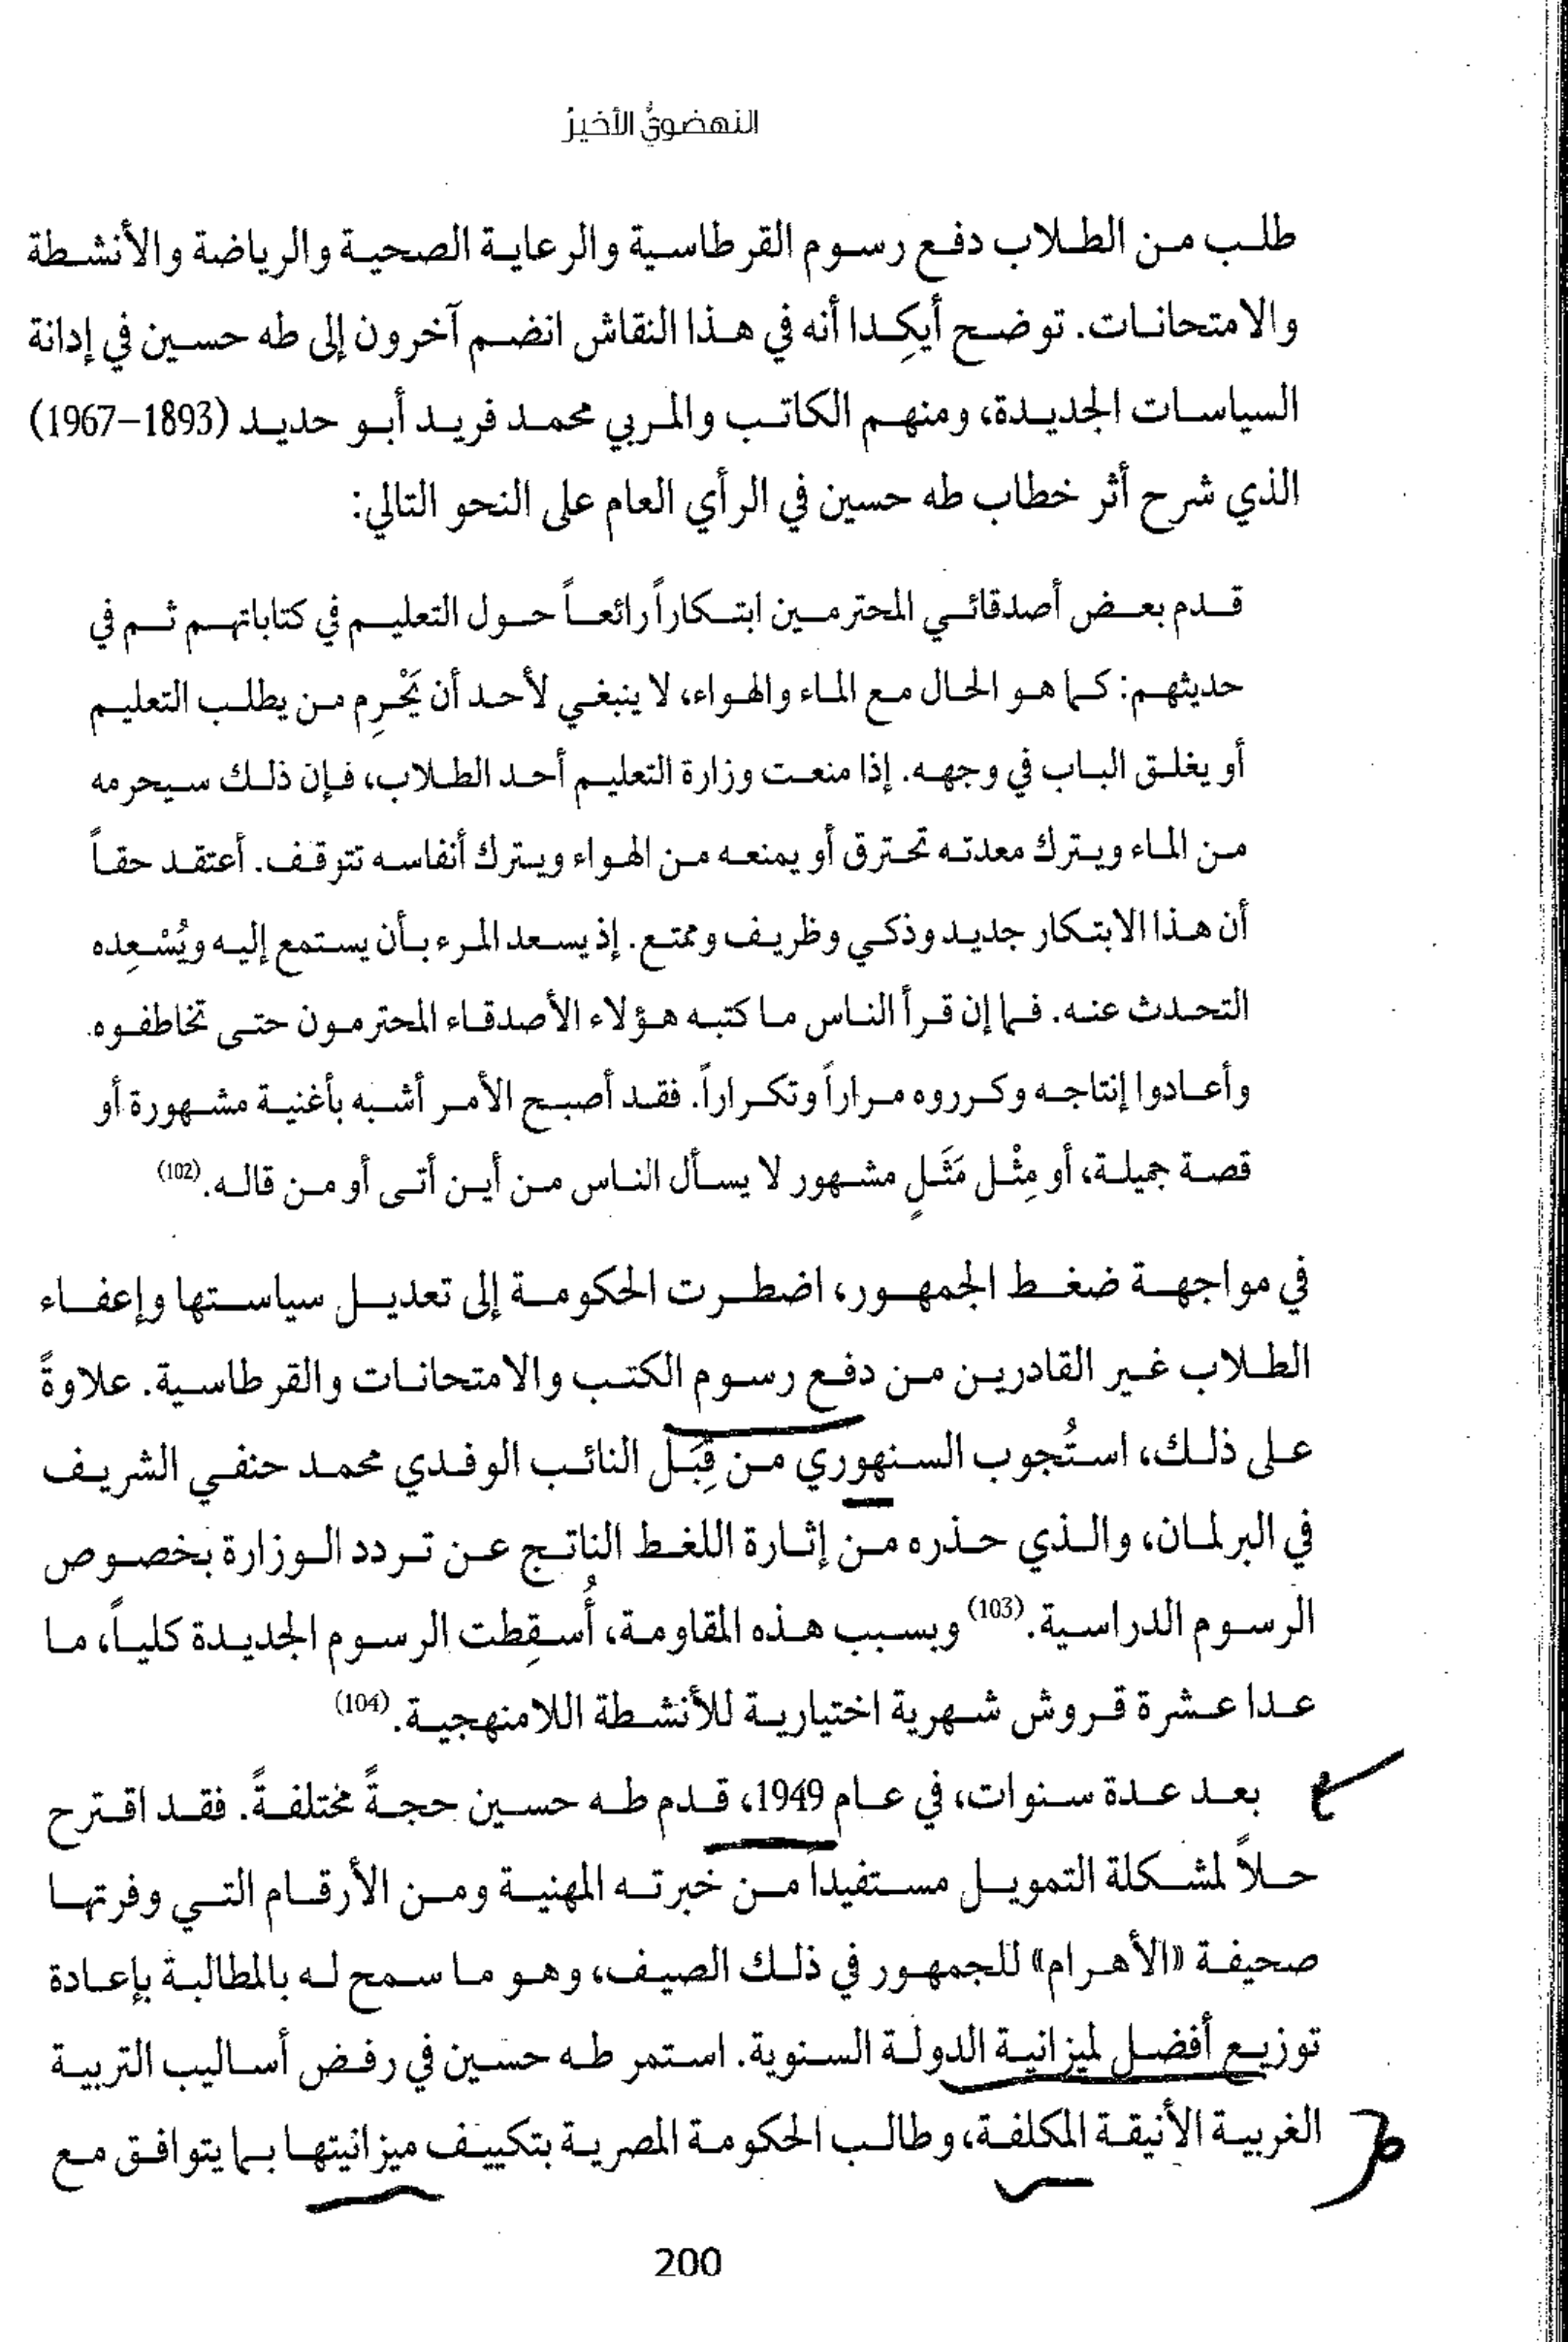 النهضويُّ الأخيرُ
طلب من الطلاب دفع رسوم القرطاسية والرعاية الصحية والرياضة والأنشطة
والامتحانات. توضح أيكِدا أنه في هذا النقاش انضم آخرون إلى طه حسين في إدانة
السياسات الجديدة، ومنهم الكاتب والمربي محمد فريد أبو حديد (1893–1967)
الذي شرح أثر خطاب طه حسين في الرأي العام على النحو التالي:
قدم بعض أصدقائي المحترمين ابتكاراً رائعاً حول التعليم في كتاباتهم ثم في
حديثهم: كما هو الحال مع الماء والهواء، لا ينبغي لأحد أن يَحْرِم من يطلب التعليم
أو يغلق الباب في وجهه. إذا منعت وزارة التعليم أحد الطلاب، فإن ذلك سيحرمه
من الماء ويترك معدته تحترق أو يمنعه من الهواء ويترك أنفاسه تتوقف. أعتقد حقاً
أن هذا الابتكار جديد وذكي وظريف وممتع. إذ يسعد المرء بأن يستمع إليه ويُسْعِده
التحدث عنه. فما إن قرأ الناس ما كتبه هؤلاء الأصدقاء المحترمون حتى تخاطفوه
وأعادوا إنتاجه وكرروه مراراً وتكراراً. فقد أصبح الأمر أشبه بأغنية مشهورة أو
قصة جميلة، أو مِثْل مَثَلٍ مشهور لا يسأل الناس من أين أتى أو من قاله.(102)
في مواجهة ضغط الجمهور، اضطرت الحكومة إلى تعديل سياستها وإعفاء
الطلاب غير القادرين من دفع رسوم الكتب والامتحانات والقرطاسية. علاوةً
على ذلك، استُجوب السنهوري من قِبَل النائب الوفدي محمد حنفي الشريف
في البرلمان، والذي حذره من إثارة اللغط الناتج عن تردد الوزارة بخصوص
الرسوم الدراسية.(103) وبسبب هذه المقاومة، أُسقِطت الرسوم الجديدة كلياً، ما
عدا عشرة قروش شهرية اختيارية للأنشطة اللامنهجية.(104)
بعد عدة سنوات، في عام 1949، قدم طه حسين حجةً مختلفةً. فقد اقترح
حلاً لمشكلة التمويل مستفيداً من خبرته المهنية ومن الأرقام التي وفرتها
صحيفة «الأهرام» للجمهور في ذلك الصيف، وهو ما سمح له بالمطالبة بإعادة
توزيع أفضل لميزانية الدولة السنوية. استمر طه حسين في رفض أساليب التربية
الغربية الأنيقة المكلفة، وطالب الحكومة المصرية بتكييف ميزانيتها بما يتوافق مع
200